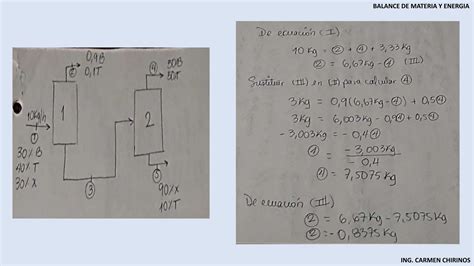 BALANCE DE MATERIA Y ENERGIA
② 0,9B
0,1T
④ 50B
50T
10Kg/h
①
1
2
30%B
40%T
30%X
③
⑤
90%X
10%T
De ecuación (I)
10Kg = ② + ④ + 3,33Kg
② = 6,67Kg - ④ (III)
Sustituir (III) en (I) para calcular ④
3Kg = 0,9(6,67Kg - ④) + 0,5④
3Kg = 6,003Kg - 0,9④ + 0,5④
-3,003Kg = -0,4④
④ = -3,003Kg
-0,4
④ = 7,5075Kg
De ecuación (III)
② = 6,67Kg - 7,5075Kg
② = -0,8375Kg
ING. CARMEN CHIRINOS